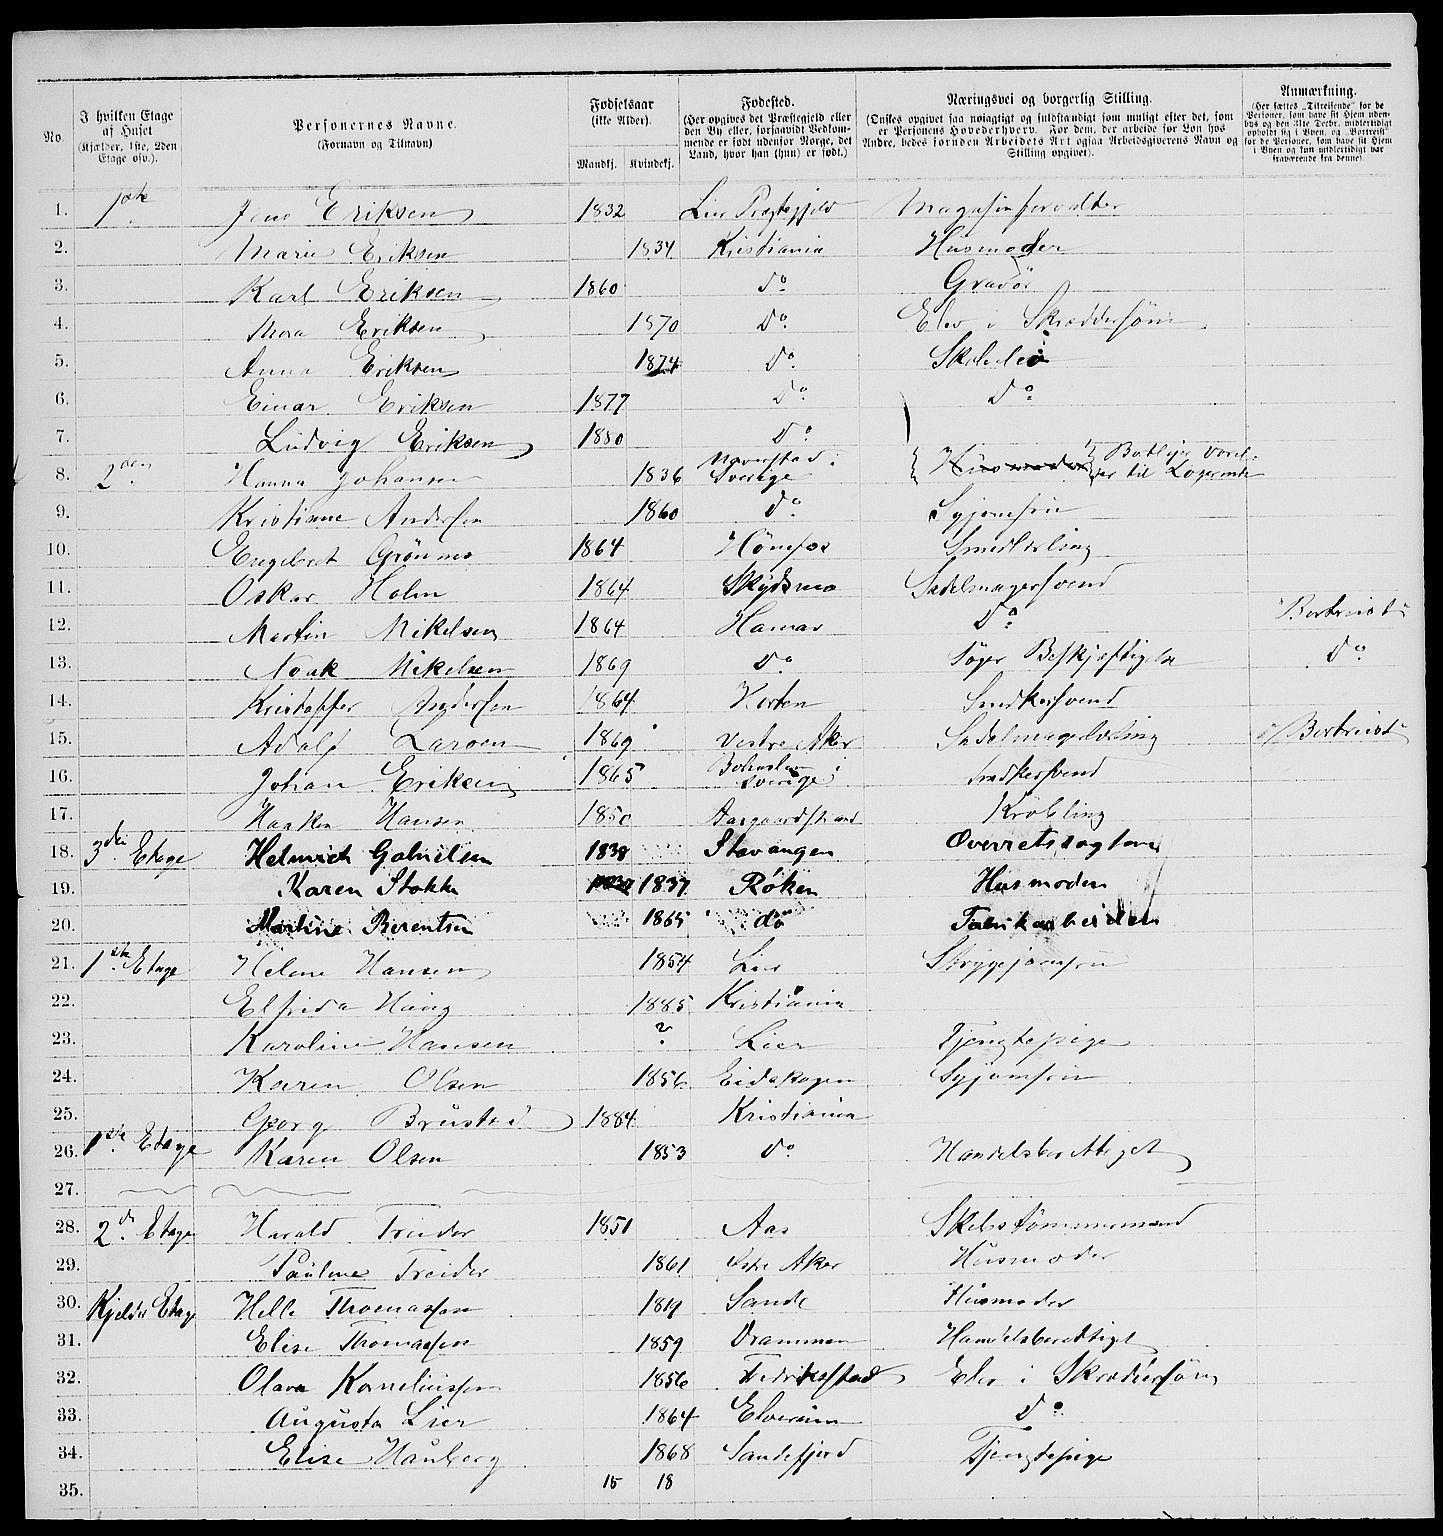 No. | I hvilken Etage af Huset (Kjælder, 1ste, 2den Etage osv.). | Personernes Navne. (Fornavn og Tilnavn) | Fødselsaar (ikke Alder). Mandkj. Kvindekj. | Fødested. (Her opgives det Præstegjeld eller den By eller, forsaavidt Vedkommende er født udenfor Norge, det Land, hvor han (hun) er født.) | Næringsvei og borgerlig Stilling. (Ønskes opgivet saa nøiagtigt og fuldstændigt som muligt efter det, som er Personens Hovederhverv. For dem, der arbeide for Løn hos Andre, bedes foruden Arbeidets Art ogsaa Arbeidsgiverens Navn og Stilling opgivet). | Anmærkning. (Her sættes „Tilreisende“ for de Personer, som have sit Hjem udenbys og den 31te Decbr. midlertidigt opholdt sig i Byen, og „Bortreist“ for de Personer, som have sit Hjem i Byen og kun midlertidigt var fraværende fra denne).
1. 1ste Jens Eriksen 1832 Lier Præstegjeld Magasinforvalter
2. Marie Eriksen 1834 Kristiania Husmoder
3. Karl Eriksen 1860 do Gravør
4. Mora Eriksen 1870 Do Elev i Skræddersøm
5. Anna Eriksen 1874 Do
6. Einar Eriksen 1877 Do Do
7. Ludvig Eriksen 1880 Do
8. 2den Hanna Johansen 1836 Sverige Husmoder til Logerende
9. Kristiane Andersen 1860 Do Syjomfru
10. Engebret Grønmo 1864 Hønefos Smedlærling
11. Oskar Holm 1864 Skydsmo Sadelmagersvend
12. Martin Mikelsen 1864 Hamar Do "Bortreist"
13. Noak Mikelsen 1869 Do Søger Beskjæftigelse Do
14. Kristoffer Andersen 1864 Horten Snedkersvend
15. Adolf Larsen 1869 Vestre Aker Sadelmagerlærling "Bortreist"
16. Johan Eriksen 1865 Bohuslen i Sverige Snedkersvend
17. Haaken Hansen 1850 Aasgaardstrand
18. 3die Etage Helmrich Gabrielsen 1838 Stavanger Overretssagfører
19. Karen Stokke 1837 Røken Husmoder
20. Martine Berentsen 1865 do Fabrikarbeider
21. 1ste Etage Helene Hansen 1854 Lier Strygejomfru
22. Elfrida Haug 1885 Kristiania
23. Karoline Hansen ? Lier Tjenstepige
24. Karen Olsen 1856 Eidskogen Syjomfru
25. Georg Brusted 1884 Kristiania
26. 1ste Etage Karen Olsen 1853 Do Handelsberettiget
27.
28. 2d Etage Harald Treider 1851 Aas Skibstømmermand
29. Pauline Treider 1861 Østre Aker Husmoder
30. Kjelder Etage Helle Thomassen 1819 Sande Husmoder
31. Elise Thomassen 1859 Drammen Handelsberettiget
32. Olava Korneliussen 1856 Fredrikstad Elev i Skræddersøm
33. Augusta Lier 1864 Elverum Do
34. Elise Hauberg 1868 Sandefjord Tjenstepige
35. 15 18